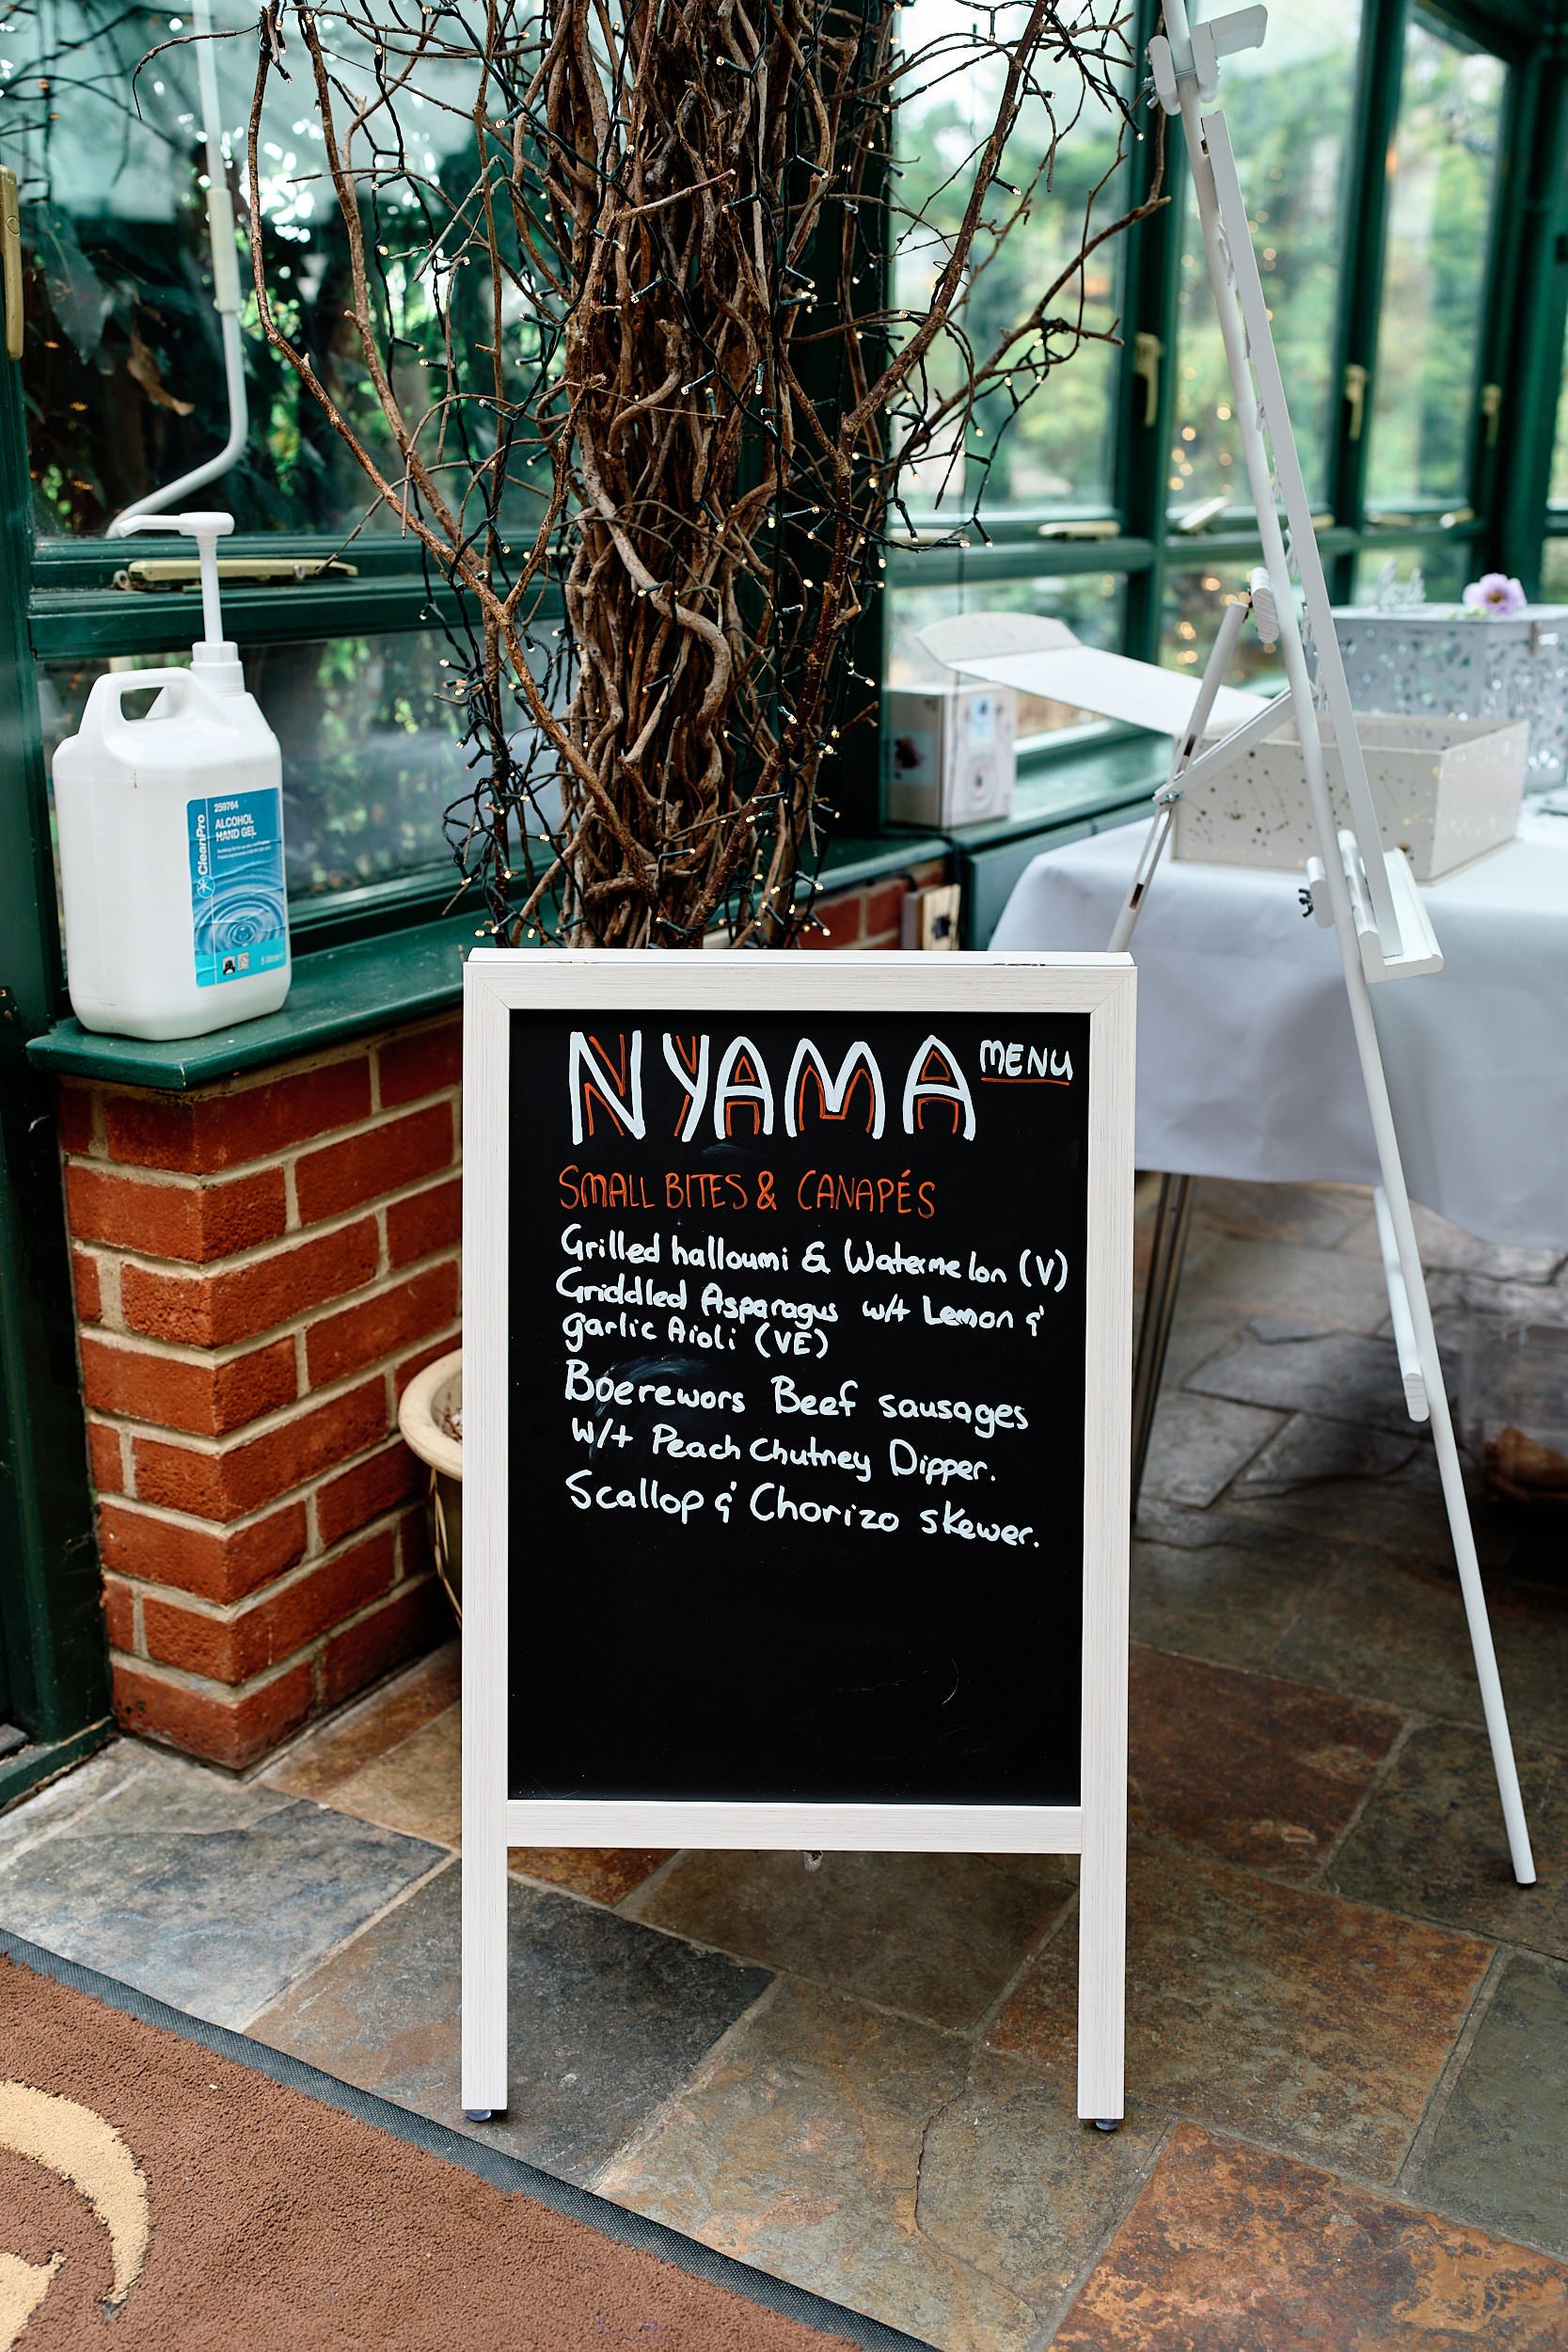 NYAMA MENU
SMALL BITES & CANAPÉS
Grilled halloumi & Watermelon (V)
Griddled Asparagus w/t Lemon &
garlic Aioli (VE)
Boerewors Beef sausages
W/t Peach Chutney Dipper.
Scallop & Chorizo skewer.
259764
ALCOHOL
HAND GEL
CleanPro